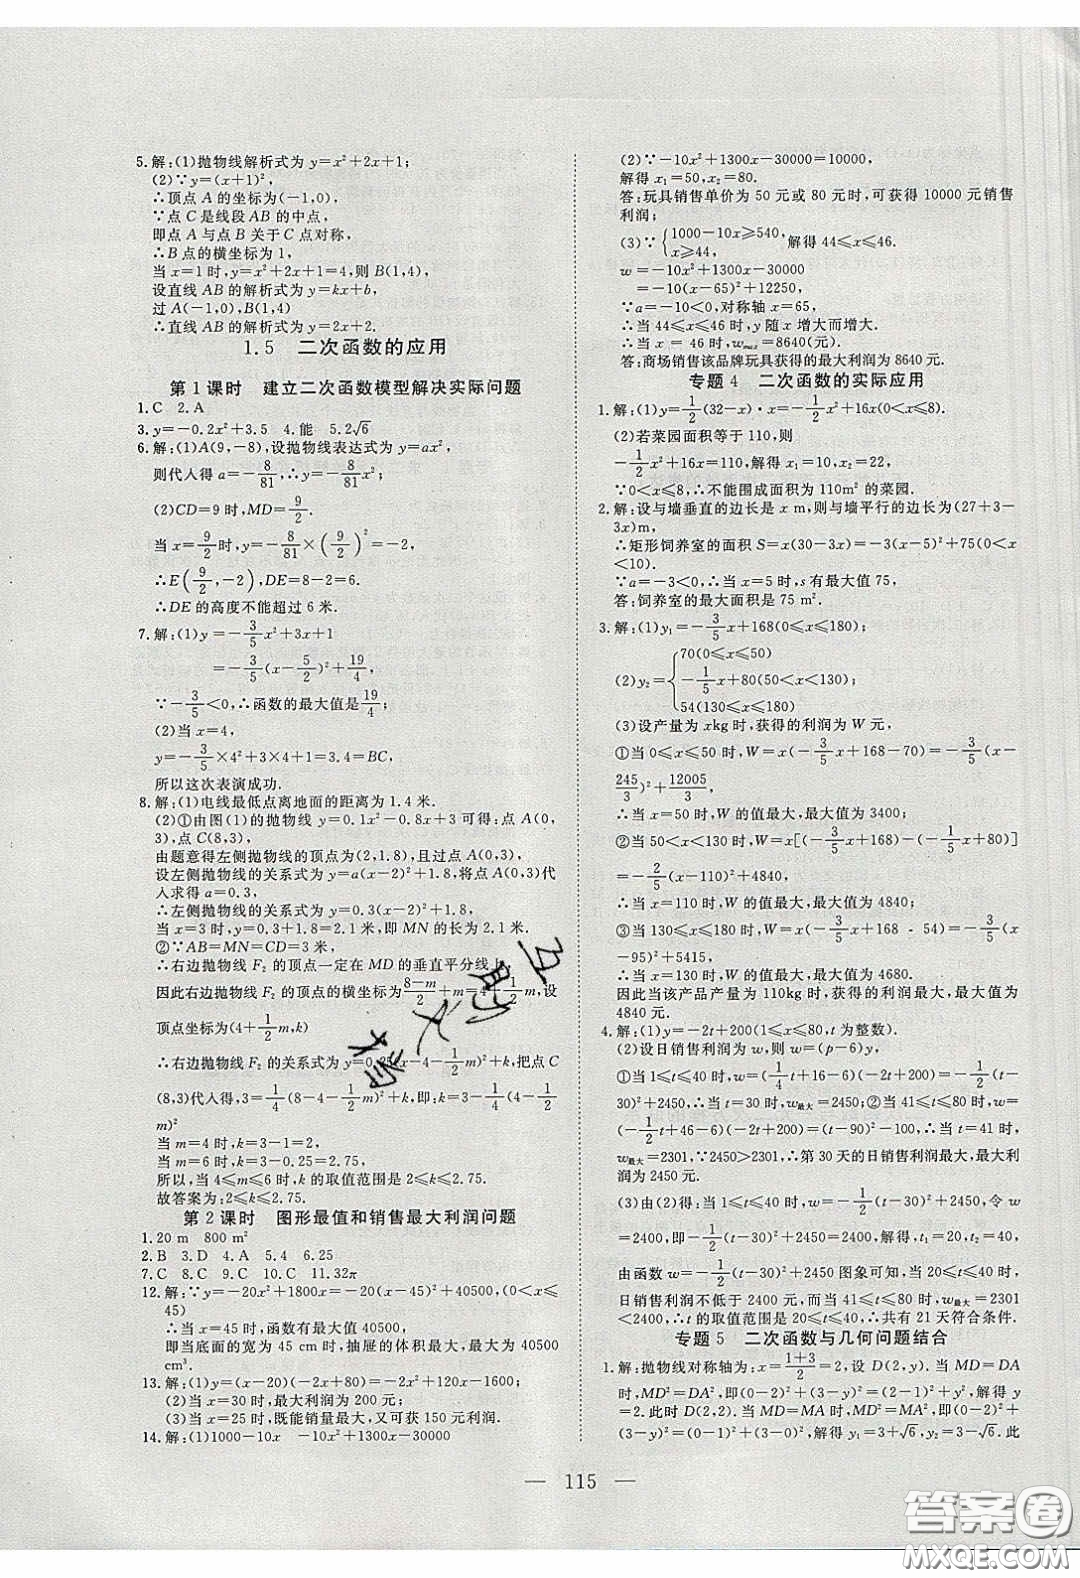 5.解:(1)抛物线解析式为 y=x²+2x+1;
(2)∵y=(x+1)²,
∴顶点 A 的坐标为(-1,0);
∵点 C 是线段 AB 的中点,
即点 A 与点 B 关于 C 点对称,
∴B 点的横坐标为 1,
当 x=1 时,y=x²+2x+1=4,则 B(1,4),
设直线 AB 的解析式为 y=kx+b,
过 A(-1,0),B(1,4)
∴直线 AB 的解析式为 y=2x+2.
1.5 二次函数的应用
第 1 课时 建立二次函数模型解决实际问题
1.C 2.A
3.y=-0.2x²+3.5 4.能 5.2√6
6.解:(1)A(9,-8),设抛物线表达式为 y=ax²,
则代人得 a=-8/81,∴y=-8/81x².
(2)CD=9 时,MD=9/2.
当 x=9/2时,y=-8/81×(9/2)²=-2,
∴E(9/2,-2),DE=8-2=6.
∴DE 的高度不能超过 6 米.
7.解:(1)y=-3/5x²+3x+1
=-3/5(x-5/2)²+19/4,
∵-3/5<0,∴函数的最大值是19/4;
(2)当 x=4,
y=-3/5×4²+3×4+1=3.4=BC,
所以这次表演成功.
8.解:(1)电线最低点离地面的距离为 1.4 米.
(2)①由图(1)的抛物线 y=0.1x²-0.8x+3 可得:点 A(0,
3),点 C(8,3),
由题意得左侧抛物线的顶点为(2,1.8),且过点 A(0,3)
设左侧抛物线的关系式为 y=a(x-2)²+1.8,把点 A(0,3)代
人求得 a=0.3,
∴左侧抛物线的关系式为 y=0.3(x-2)²+1.8,
当 x=3 时,y=0.3+1.8=2.1 米,即 MN 的长为 2.1 米.
②∵AB=MN=CD=3 米,
∴右边抛物线 F₂ 的顶点一定在 MD 的垂直平分线上,
因此右边抛物线 F₂ 的顶点的横坐标为(8-m)/2+m=4+1/2m,设
顶点坐标为(4+1/2m,k)
∴右边抛物线 F₂ 的关系式为 y=0.25(x-4-1/2m)²+k,把点 C
(8,3)代人得,3=1/4(8-4-1/2m)²+k,即:k=3-1/4(4-1/2
m)²
当 m=4 时,k=3-1=2,
当 m=6 时,k=3-0.25=2.75,
所以,当 4⩽m⩽6 时,k 的取值范围是 2⩽k⩽2.75.
故答案为:2⩽k⩽2.75.
第 2 课时 图形最值和销售最大利润问题
1.20 m 800 m²
2.B 3.D 4.A 5.4 6.25
7.C 8.C 9.C 10.C 11.32π
12.解:∵y=-20x²+1800x=-20(x-45)²+40500,(0<x⩽
45)
∴当 x=45 时,函数有最大值 40500,
即当底面的宽为 45 cm 时,抽屉的体积最大,最大为 40500
cm³.
13.解:(1)y=(x-20)(-2x+80)=-2x²+120x-1600;
(2)当 x=30 时,最大利润为 200 元;
(3)当 x=25 时,既能销量最大,又可获 150 元利润.
14.解:(1)1000-10x -10x²+1300x-30000
(2)∵-10x²+1300x-30000=10000,
解得 x₁=50,x₂=80.
答:玩具销售单价为 50 元或 80 元时,可获得 10000 元销售
利润;
(3)∵{1000-10x⩾540, x⩾44, 解得 44⩽x⩽46.
w=-10x²+1300x-30000
=-10(x-65)²+12250,
∵a=-10<0,对称轴 x=65,
∴当 44⩽x⩽46 时,y 随 x 增大而增大.
∴当 x = 46 时,wmax=8640(元).
答:商场销售该品牌玩具获得的最大利润为 8640 元.
专题 4 二次函数的实际应用
1.解:(1)y=1/2(32-x)·x=-1/2x²+16x(0<x⩽8).
(2)若菜园面积等于 110,则
-1/2x²+16x=110,解得 x₁=10,x₂=22,
∵0<x⩽8,∴不能围成面积为 110m² 的菜园.
2.解:设与墙垂直的边长是 x m,则与墙平行的边长为(27+3-
3x)m,
∴矩形饲养室的面积 S=x(30-3x)=-3(x-5)²+75(0<x
<10).
∵a=-3<0,∴当 x=5 时,s 有最大值 75,
答:饲养室的最大面积是 75 m².
3.解:(1)y₁=-3/5x+168(0⩽x⩽180);
(2)y₂={70(0⩽x⩽50) -1/5x+80(50<x<130); 54(130⩽x⩽180)
(3)设产量为 xkg 时,获得的利润为 W 元,
①当 0⩽x⩽50 时,W=x(-3/5x+168-70)=-3/5(x-
245/3)²+12005/3,
∴当 x=50 时,W 的值最大,最大值为 3400;
②当 50<x<130 时,W=x[(-3/5x+168)-(-1/5x+80)]
=-2/5(x-110)²+4840,
∴当 x=110 时,W 的值最大,最大值为 4840;
③当 130⩽x⩽180 时,W=x(-3/5x+168 - 54)=-3/5(x
-95)²+5415,
∴当 x=130 时,W 的值最大,最大值为 4680.
因此当该产品产量为 110kg 时,获得的利润最大,最大值为
4840 元.
4.解:(1)y=-2t+200(1⩽x⩽80,t 为整数).
(2)设日销售利润为 w,则 w=(p-6)y,
①当 1⩽t⩽40 时,w=(1/4t+16-6)(-2t+200)=-1/2(t-
30)²+2450,∴当 t=30 时,w最大=2450;②当 41⩽t⩽80 时,w=
(-1/2t+46-6)(-2t+200)=(t-90)²-100,∴当 t=41 时,
w最大=2301,∵2450>2301,∴第 30 天的日销售利润最大,最大利
润为 2450 元.
(3)由(2)得:当 1⩽t⩽40 时,w=-1/2(t-30)²+2450,令 w
=2400,即-1/2(t-30)²+2450=2400,解得,t₁=20,t₂=40,
由函数 w=-1/2(t-30)²+2450 图象可知,当 20⩽t⩽40 时,
日销售利润不低于 2400 元,而当 41⩽t⩽80 时,w最大=2301
<2400,∴t 的取值范围是 20⩽t⩽40,∴共有 21 天符合条件.
专题 5 二次函数与几何问题结合
1.解:抛物线对称轴为:x=(1+3)/2=2,设 D(2,y).当 MD=DA
时,MD²=DA²,即(0-2)²+(3-y)²=(1-2)²+y²,解得 y
=2.此时 D(2,2).当 MD=MA 时,MD²=MA²,即(0-2)²
+(3-y)²=(0-1)²+(3-0)²,解得 y₁=3+√6,y₂=3-√6.此
— 115 —
互助文摘
答案卷
MXQE.COM